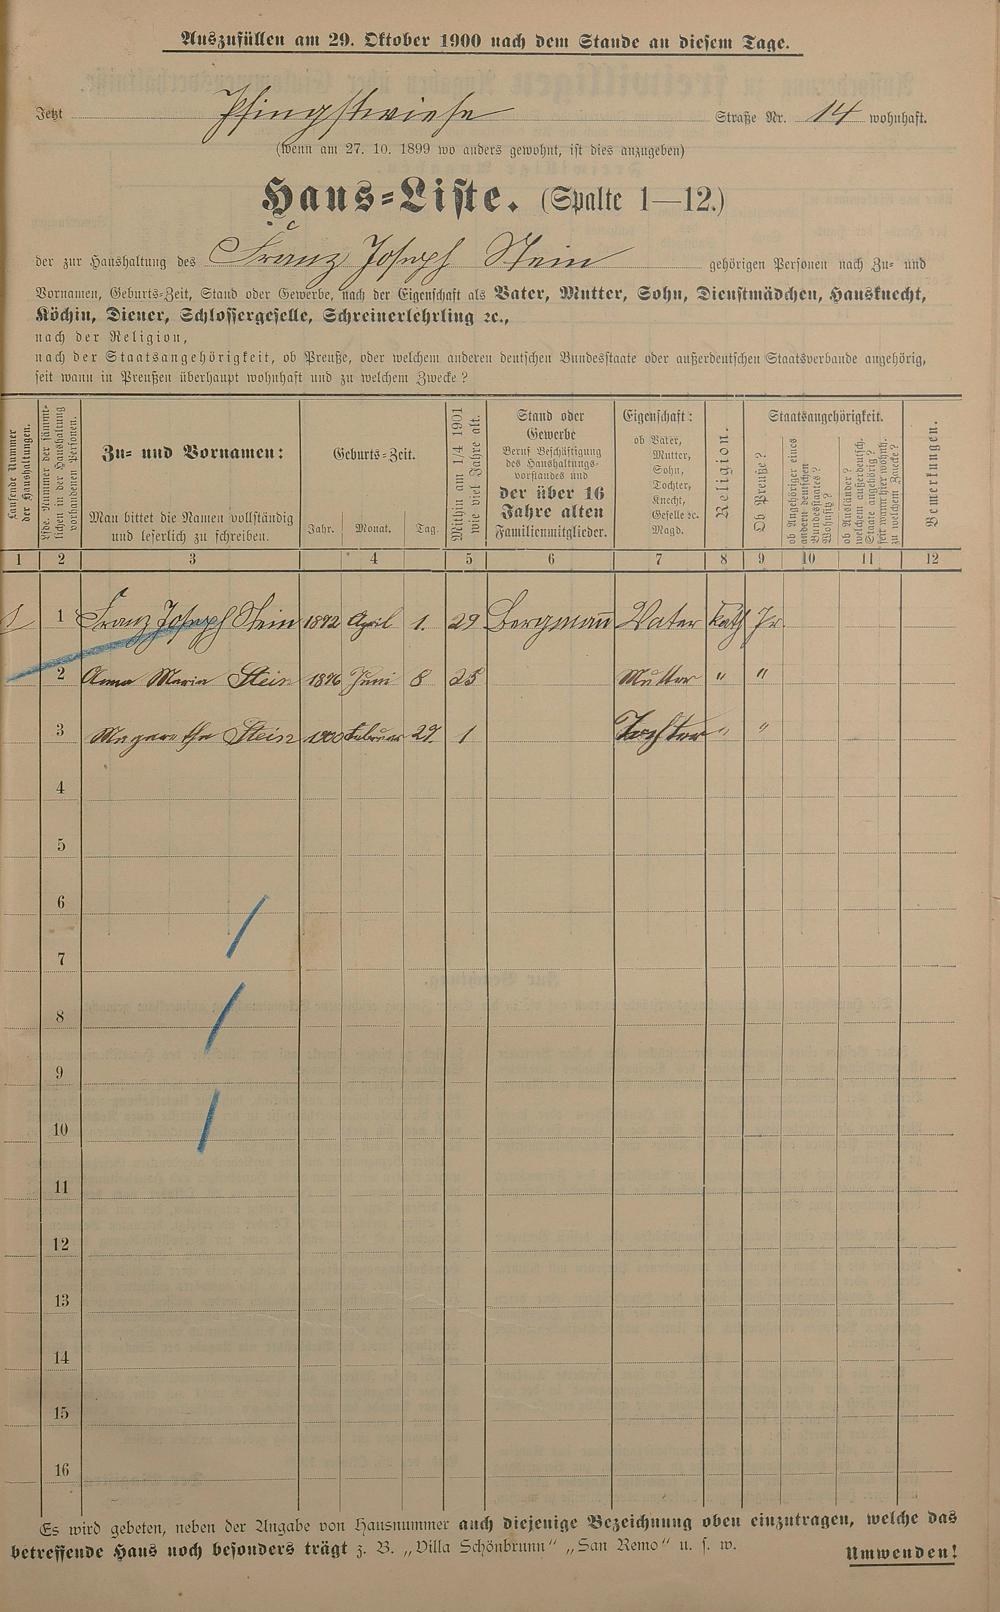 Auszufüllen am 29. Oktober 1900 nach dem Stande an diesem Tage.
Jetzt Pfingstwiese Straße Nr. 14 wohnhaft.
(Wenn am 27. 10. 1899 wo anders gewohnt, ist dies anzugeben)
Haus-Liste. (Spalte 1—12.)
der zur Haushaltung des Franz Joseph Stein gehörigen Personen nach Zu- und
Vornamen, Geburts-Zeit, Stand oder Gewerbe, nach der Eigenschaft als Vater, Mutter, Sohn, Dienstmädchen, Hausknecht,
Köchin, Diener, Schlossergeselle, Schreinerlehrling ꝛc.,
nach der Religion,
nach der Staatsangehörigkeit, ob Preuße, oder welchem anderen deutschen Bundesstaate oder außerdeutschen Staatsverbande angehörig,
seit wann in Preußen überhaupt wohnhaft und zu welchem Zwecke?
Laufende Nummer
der Haushaltungen.
Lfde. Nummer der sämmt-
lichen in der Haushaltung
vorhandenen Personen.
Zu- und Vornamen:
Man bittet die Namen vollständig
und leserlich zu schreiben.
Geburts-Zeit.
Jahr. Monat. Tag.
Mithin am 1/4 1901
wie viel Jahre alt.
Stand oder
Gewerbe
Beruf Beschäftigung
des Haushaltungs-
vorstandes und
der über 16
Jahre alten
Familienmitglieder.
Eigenschaft:
ob Vater,
Mutter,
Sohn,
Tochter,
Knecht,
Geselle ꝛc.
Magd.
Religion.
Staatsangehörigkeit.
Ob Preuße?
ob Angehöriger eines
andern deutschen
Bundesstaates?
Wohnsitz?
ob Ausländer?
welchem außerdeutsch.
Staate angehörig?
seit wann hier wohnh.
zu welchem Zwecke?
Bemerkungen.
1 2 3 4 5 6 7 8 9 10 11 12
1 1 Franz Joseph Stein 1872 April 1. 29 Bergmann Vater Kath Pr.
2 Anna Maria Stein 1876 Juni 8 25 Mutter " "
3 Magaretha Stein 1900 Februar 27. 1 Tochter " "
4
5
6
7
8
9
10
11
12
13
14
15
16
Es wird gebeten, neben der Angabe von Hausnummer auch diejenige Bezeichnung oben einzutragen, welche das
betreffende Haus noch besonders trägt z. B. „Villa Schönbrunn" „San Remo" u. s. w.
Umwenden!